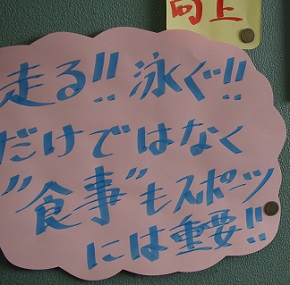 向上
走る!!泳ぐ!!
だけではなく
"食事"もスポーツ
には重要!!